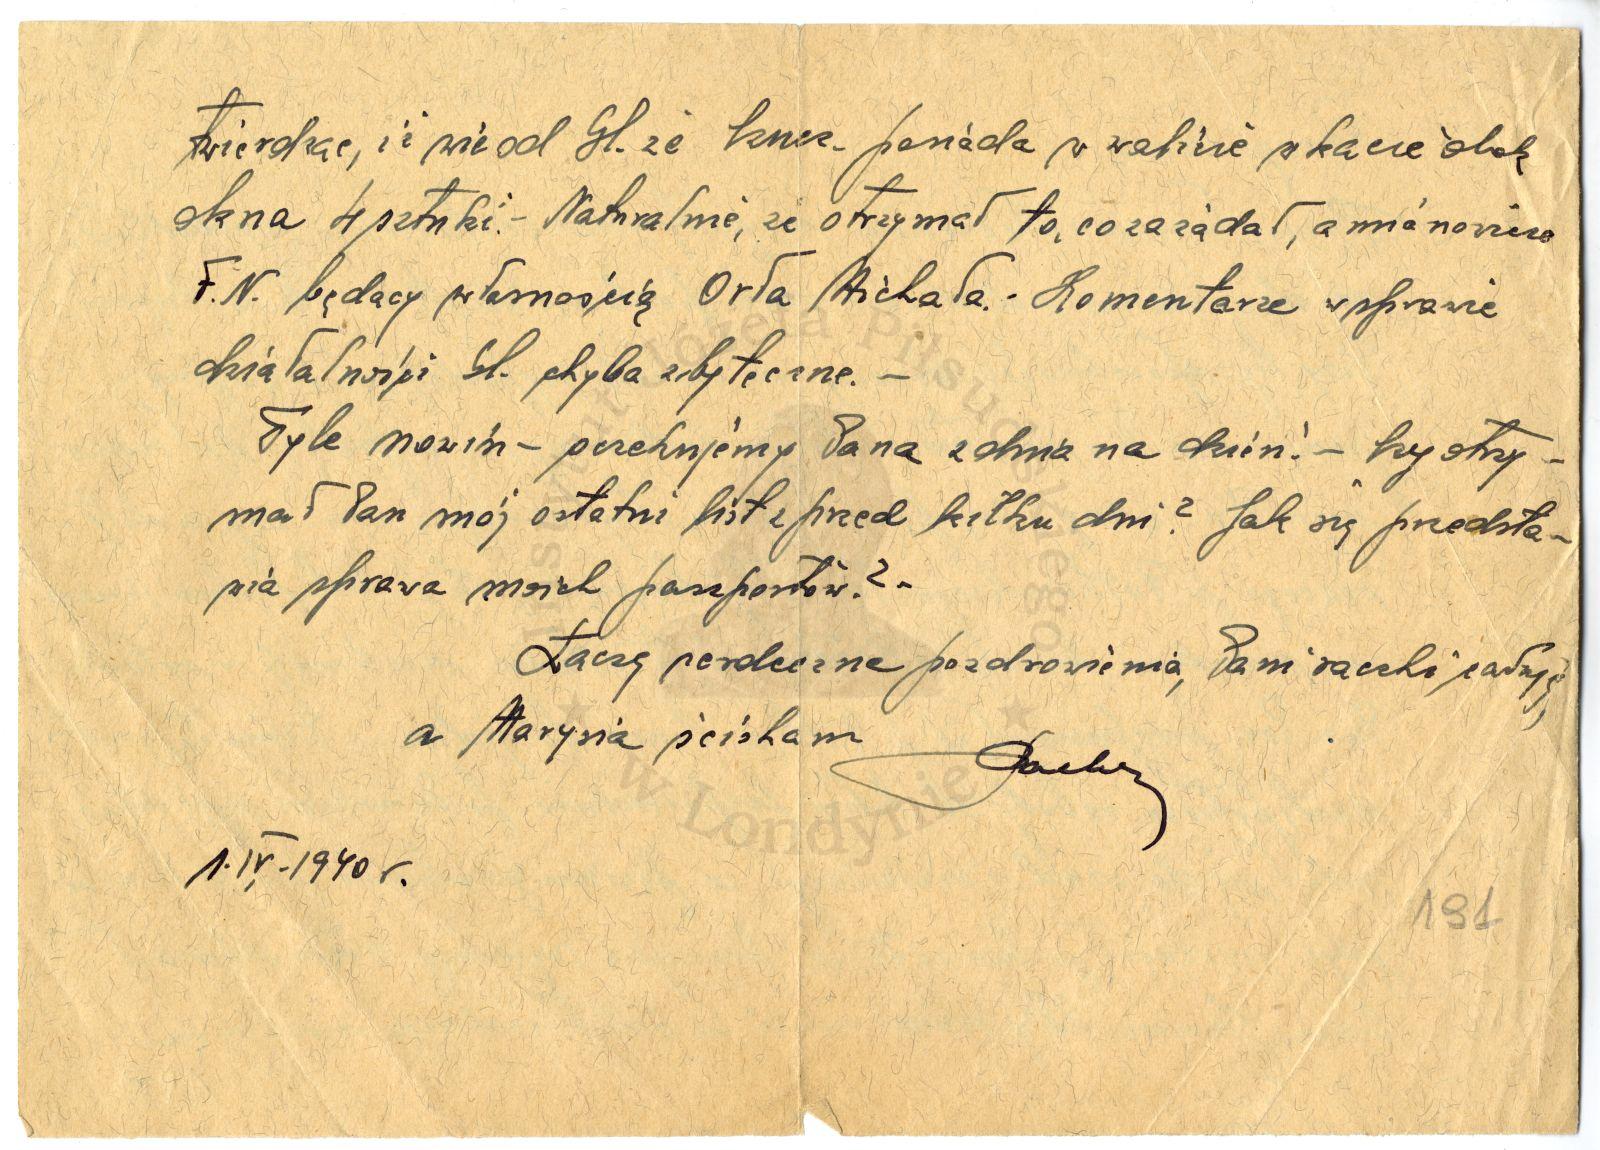 twierdząc, iż wie od Gl. że posiada w walizie w kącie obok
okna 4 sztuki. - Naturalnie, że otrzymał to, co zażądał, a mianowicie
F.N. będący własnością Orła Michała. - Komentarze w sprawie
działalności Gl. chyba zbyteczne. -
Tyle nowin - oczekujemy Pana z dnia na dzień! - Czy otrzy-
mał Pan mój ostatni list z przed kilku dni? Jak się przedsta-
wia sprawa moich paszportów? -
Łączę serdeczne pozdrowienia, Pani rączki całuję,
a Marysia ściskam
1.IV.-1940 r.
191
Instytut Józefa Piłsudskiego
w Londynie